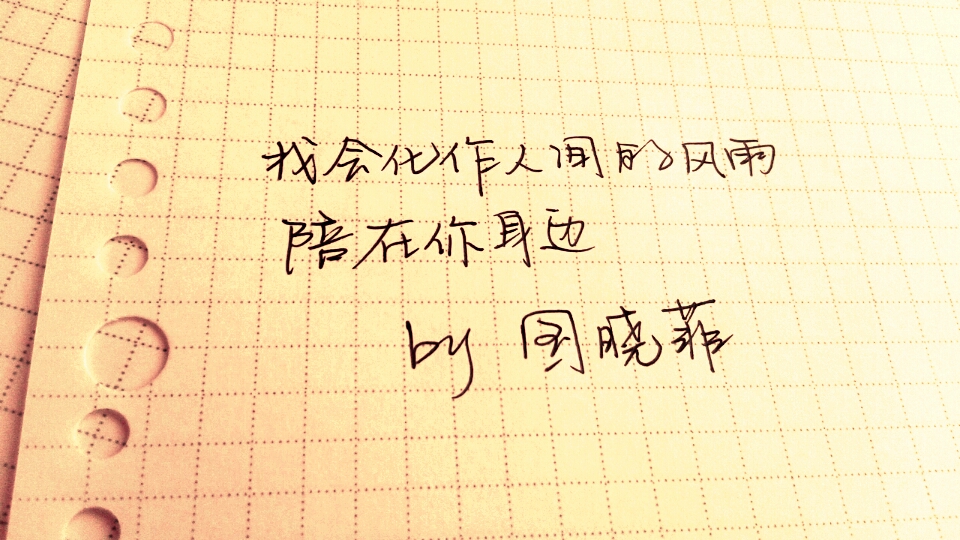 我会化作人间的风雨
陪在你身边
by 周晓菲